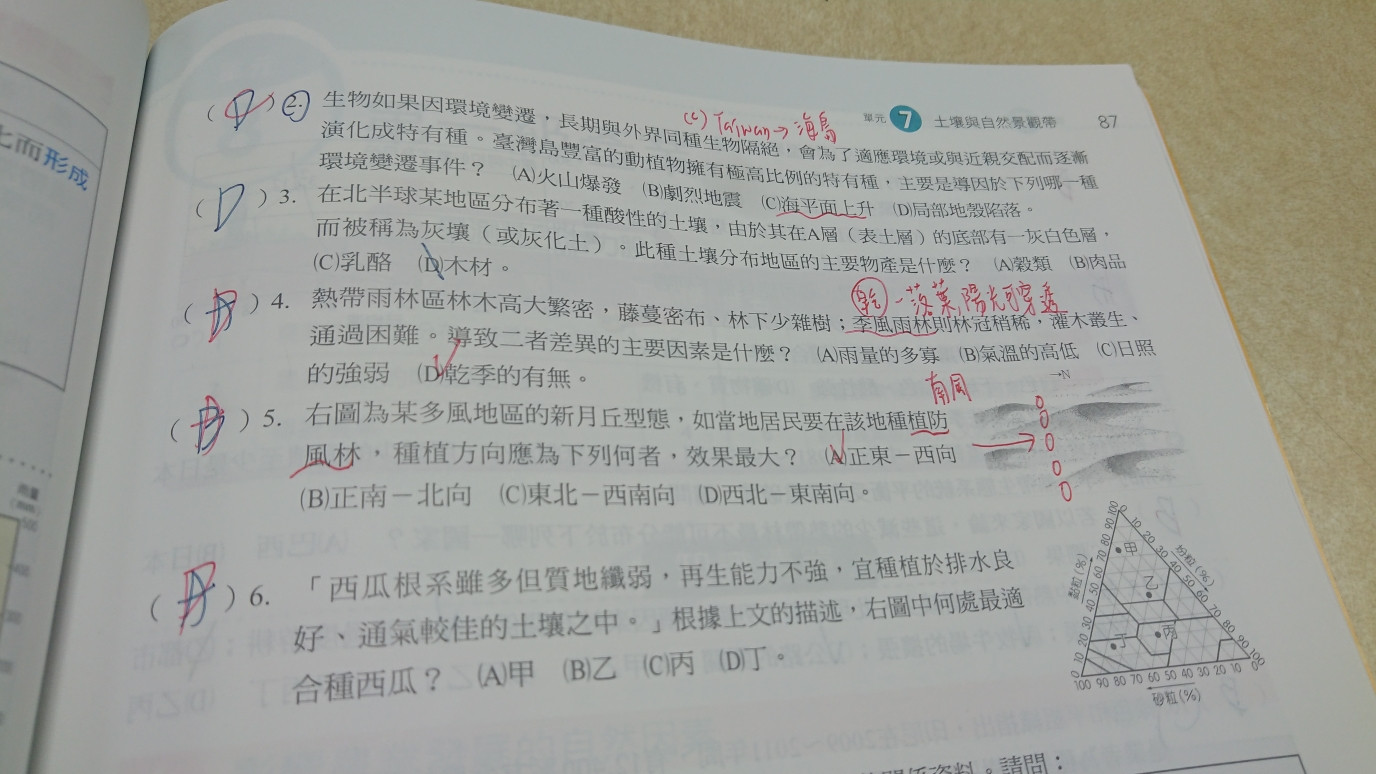 單元 7 土壤與自然景觀帶 87
(C) Taiwan→海島
( ) 2. 生物如果因環境變遷，長期與外界同種生物隔絕，會為了適應環境或與近親交配而逐漸
演化成特有種。臺灣島豐富的動植物擁有極高比例的特有種，主要是導因於下列哪一種
環境變遷事件？ (A)火山爆發 (B)劇烈地震 (C)海平面上升 (D)局部地殼陷落。
( D ) 3. 在北半球某地區分布著一種酸性的土壤，由於其在A層（表土層）的底部有一灰白色層，
而被稱為灰壤（或灰化土）。此種土壤分布地區的主要物產是什麼？ (A)穀類 (B)肉品
(C)乳酪 (D)木材。
乾－落葉,陽光可穿透
( ) 4. 熱帶雨林區林木高大繁密，藤蔓密布、林下少雜樹；季風雨林則林冠稍稀，灌木叢生、
通過困難。導致二者差異的主要因素是什麼？ (A)雨量的多寡 (B)氣溫的高低 (C)日照
的強弱 (D)乾季的有無。
南風
→N
( ) 5. 右圖為某多風地區的新月丘型態，如當地居民要在該地種植防
風林，種植方向應為下列何者，效果最大？ (A)正東－西向
(B)正南－北向 (C)東北－西南向 (D)西北－東南向。
( ) 6. 「西瓜根系雖多但質地纖弱，再生能力不強，宜種植於排水良
好、通氣較佳的土壤之中。」根據上文的描述，右圖中何處最適
合種西瓜？ (A)甲 (B)乙 (C)丙 (D)丁。
黏粒(%)
0 10 20 30 40 50 60 70 80 90 100
粉粒(%)
0 10 20 30 40 50 60 70 80 90 100
甲
乙
丙
丁
100 90 80 70 60 50 40 30 20 10 0
砂粒(%)
化而形成
資料。請問：